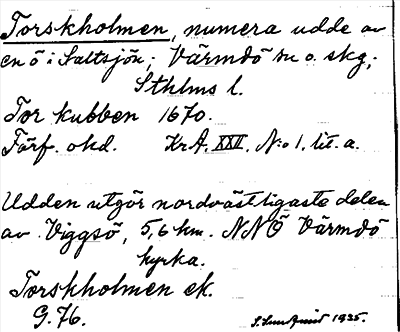 Torskholmen, numera udde av
en ö i Saltsjön; Värmdö sn o. skg;
Sthlms l.
Torskubben 1670.
Förf. okd. KrA. XXII. No 1. lit. a.
Udden utgör nordvästligaste delen
av Viggsö, 5,6 km. NNÖ Värmdö
kyrka.
Torskholmen ek.
G. 76.
S. Sundqvist 1935.